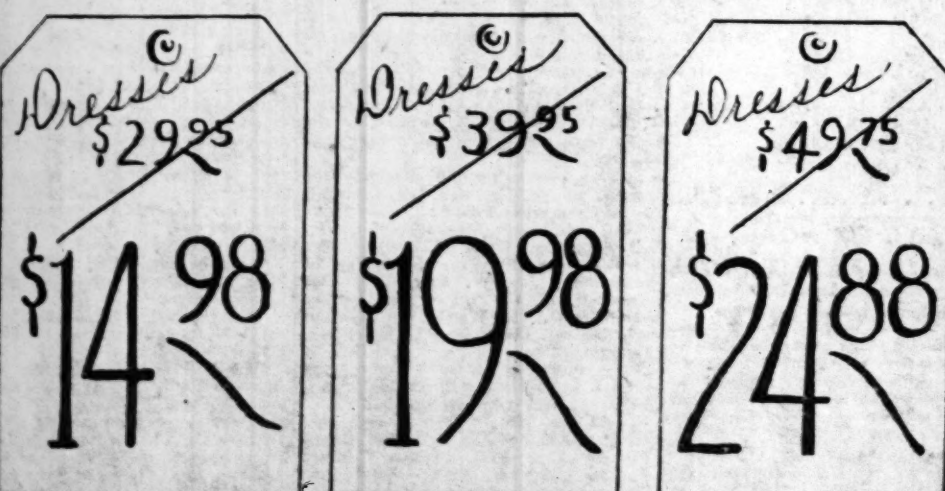 Dresses
$29.95
$14.98
Dresses
$39.95
$19.98
Dresses
$49.75
$24.88